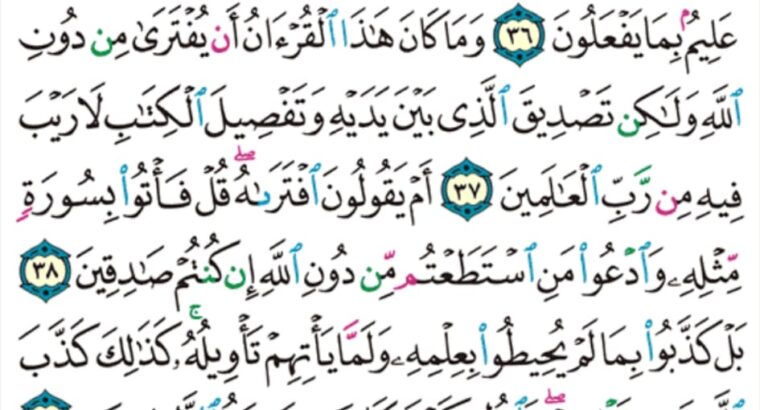 عَلِيمٌۢ بِمَا يَفْعَلُونَ ٣٦ وَمَا كَانَ هَٰذَا ٱلْقُرْءَانُ أَن يُفْتَرَىٰ مِن دُونِ
ٱللَّهِ وَلَٰكِن تَصْدِيقَ ٱلَّذِى بَيْنَ يَدَيْهِ وَتَفْصِيلَ ٱلْكِتَٰبِ لَا رَيْبَ
فِيهِ مِن رَّبِّ ٱلْعَٰلَمِينَ ٣٧ أَمْ يَقُولُونَ ٱفْتَرَىٰهُ ۖ قُلْ فَأْتُوا۟ بِسُورَةٍ
مِّثْلِهِۦ وَٱدْعُوا۟ مَنِ ٱسْتَطَعْتُم مِّن دُونِ ٱللَّهِ إِن كُنتُمْ صَٰدِقِينَ ٣٨
بَلْ كَذَّبُوا۟ بِمَا لَمْ يُحِيطُوا۟ بِعِلْمِهِۦ وَلَمَّا يَأْتِهِمْ تَأْوِيلُهُۥ ۚ كَذَٰلِكَ كَذَّبَ